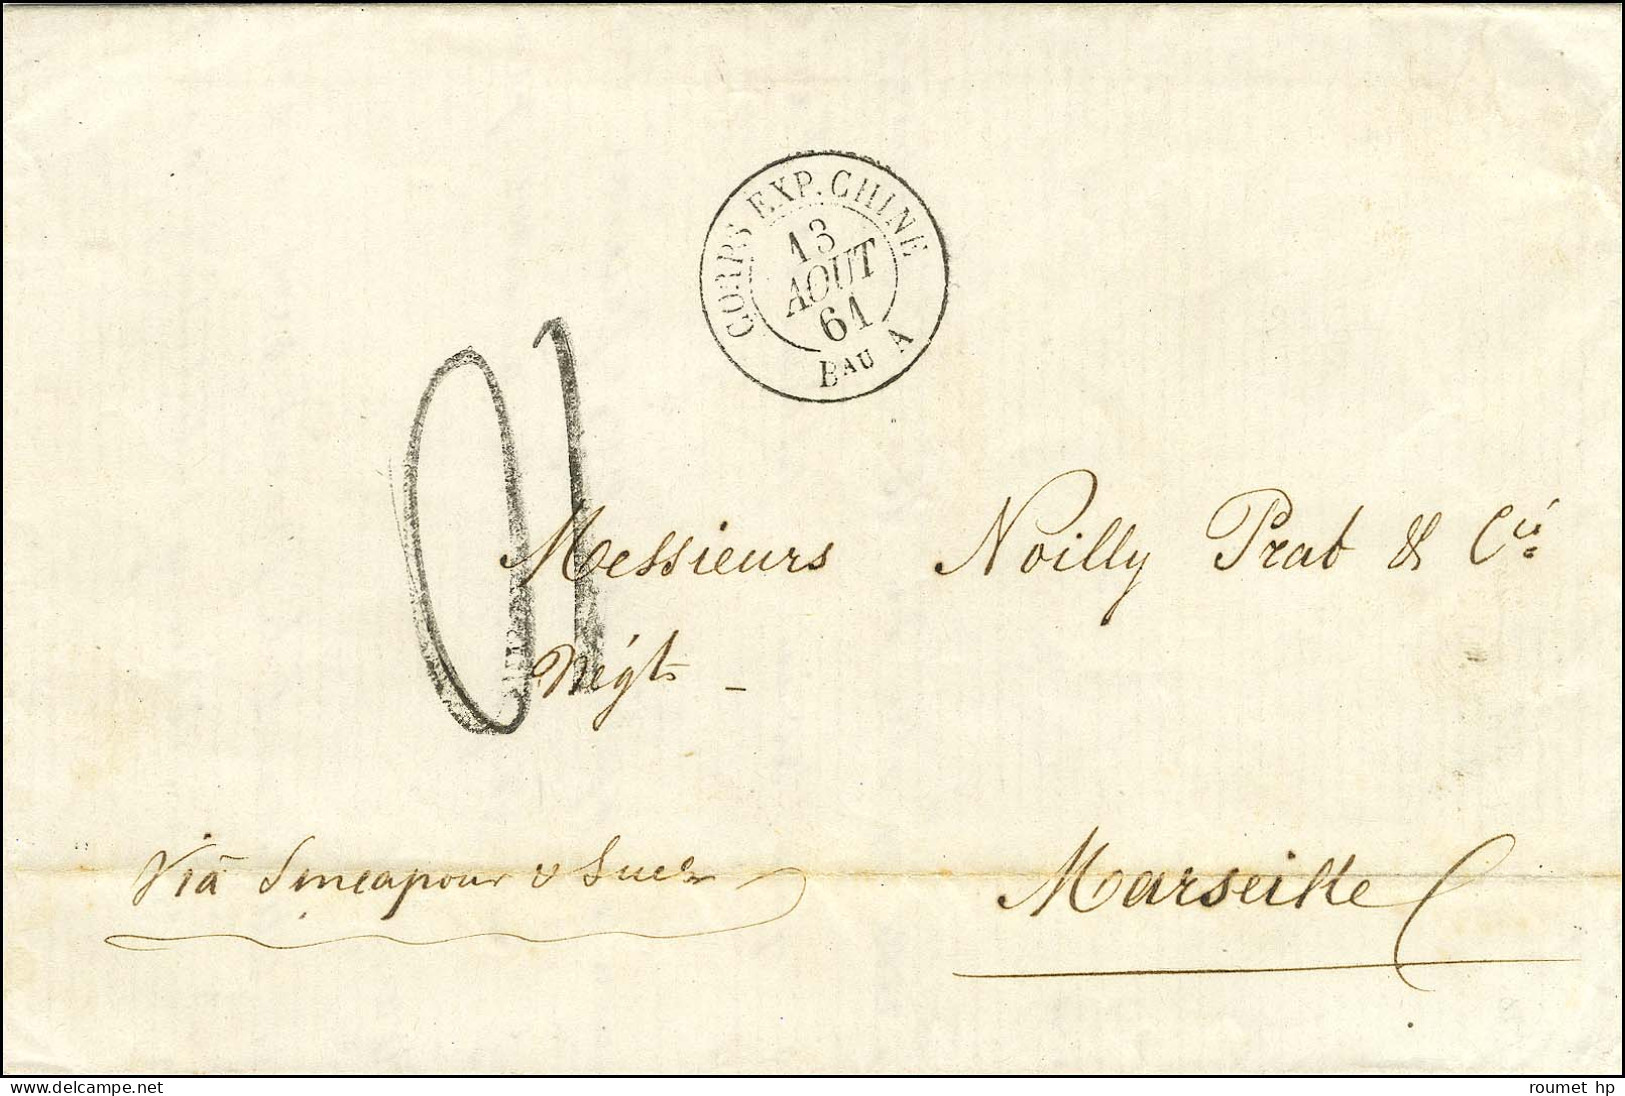 CORPS EXP. CHINE
13
AOUT
61
Bau A
Messieurs Noilly Prat & Cie
Négts -
Viâ Sincapour & Suez
Marseille
roumet hp